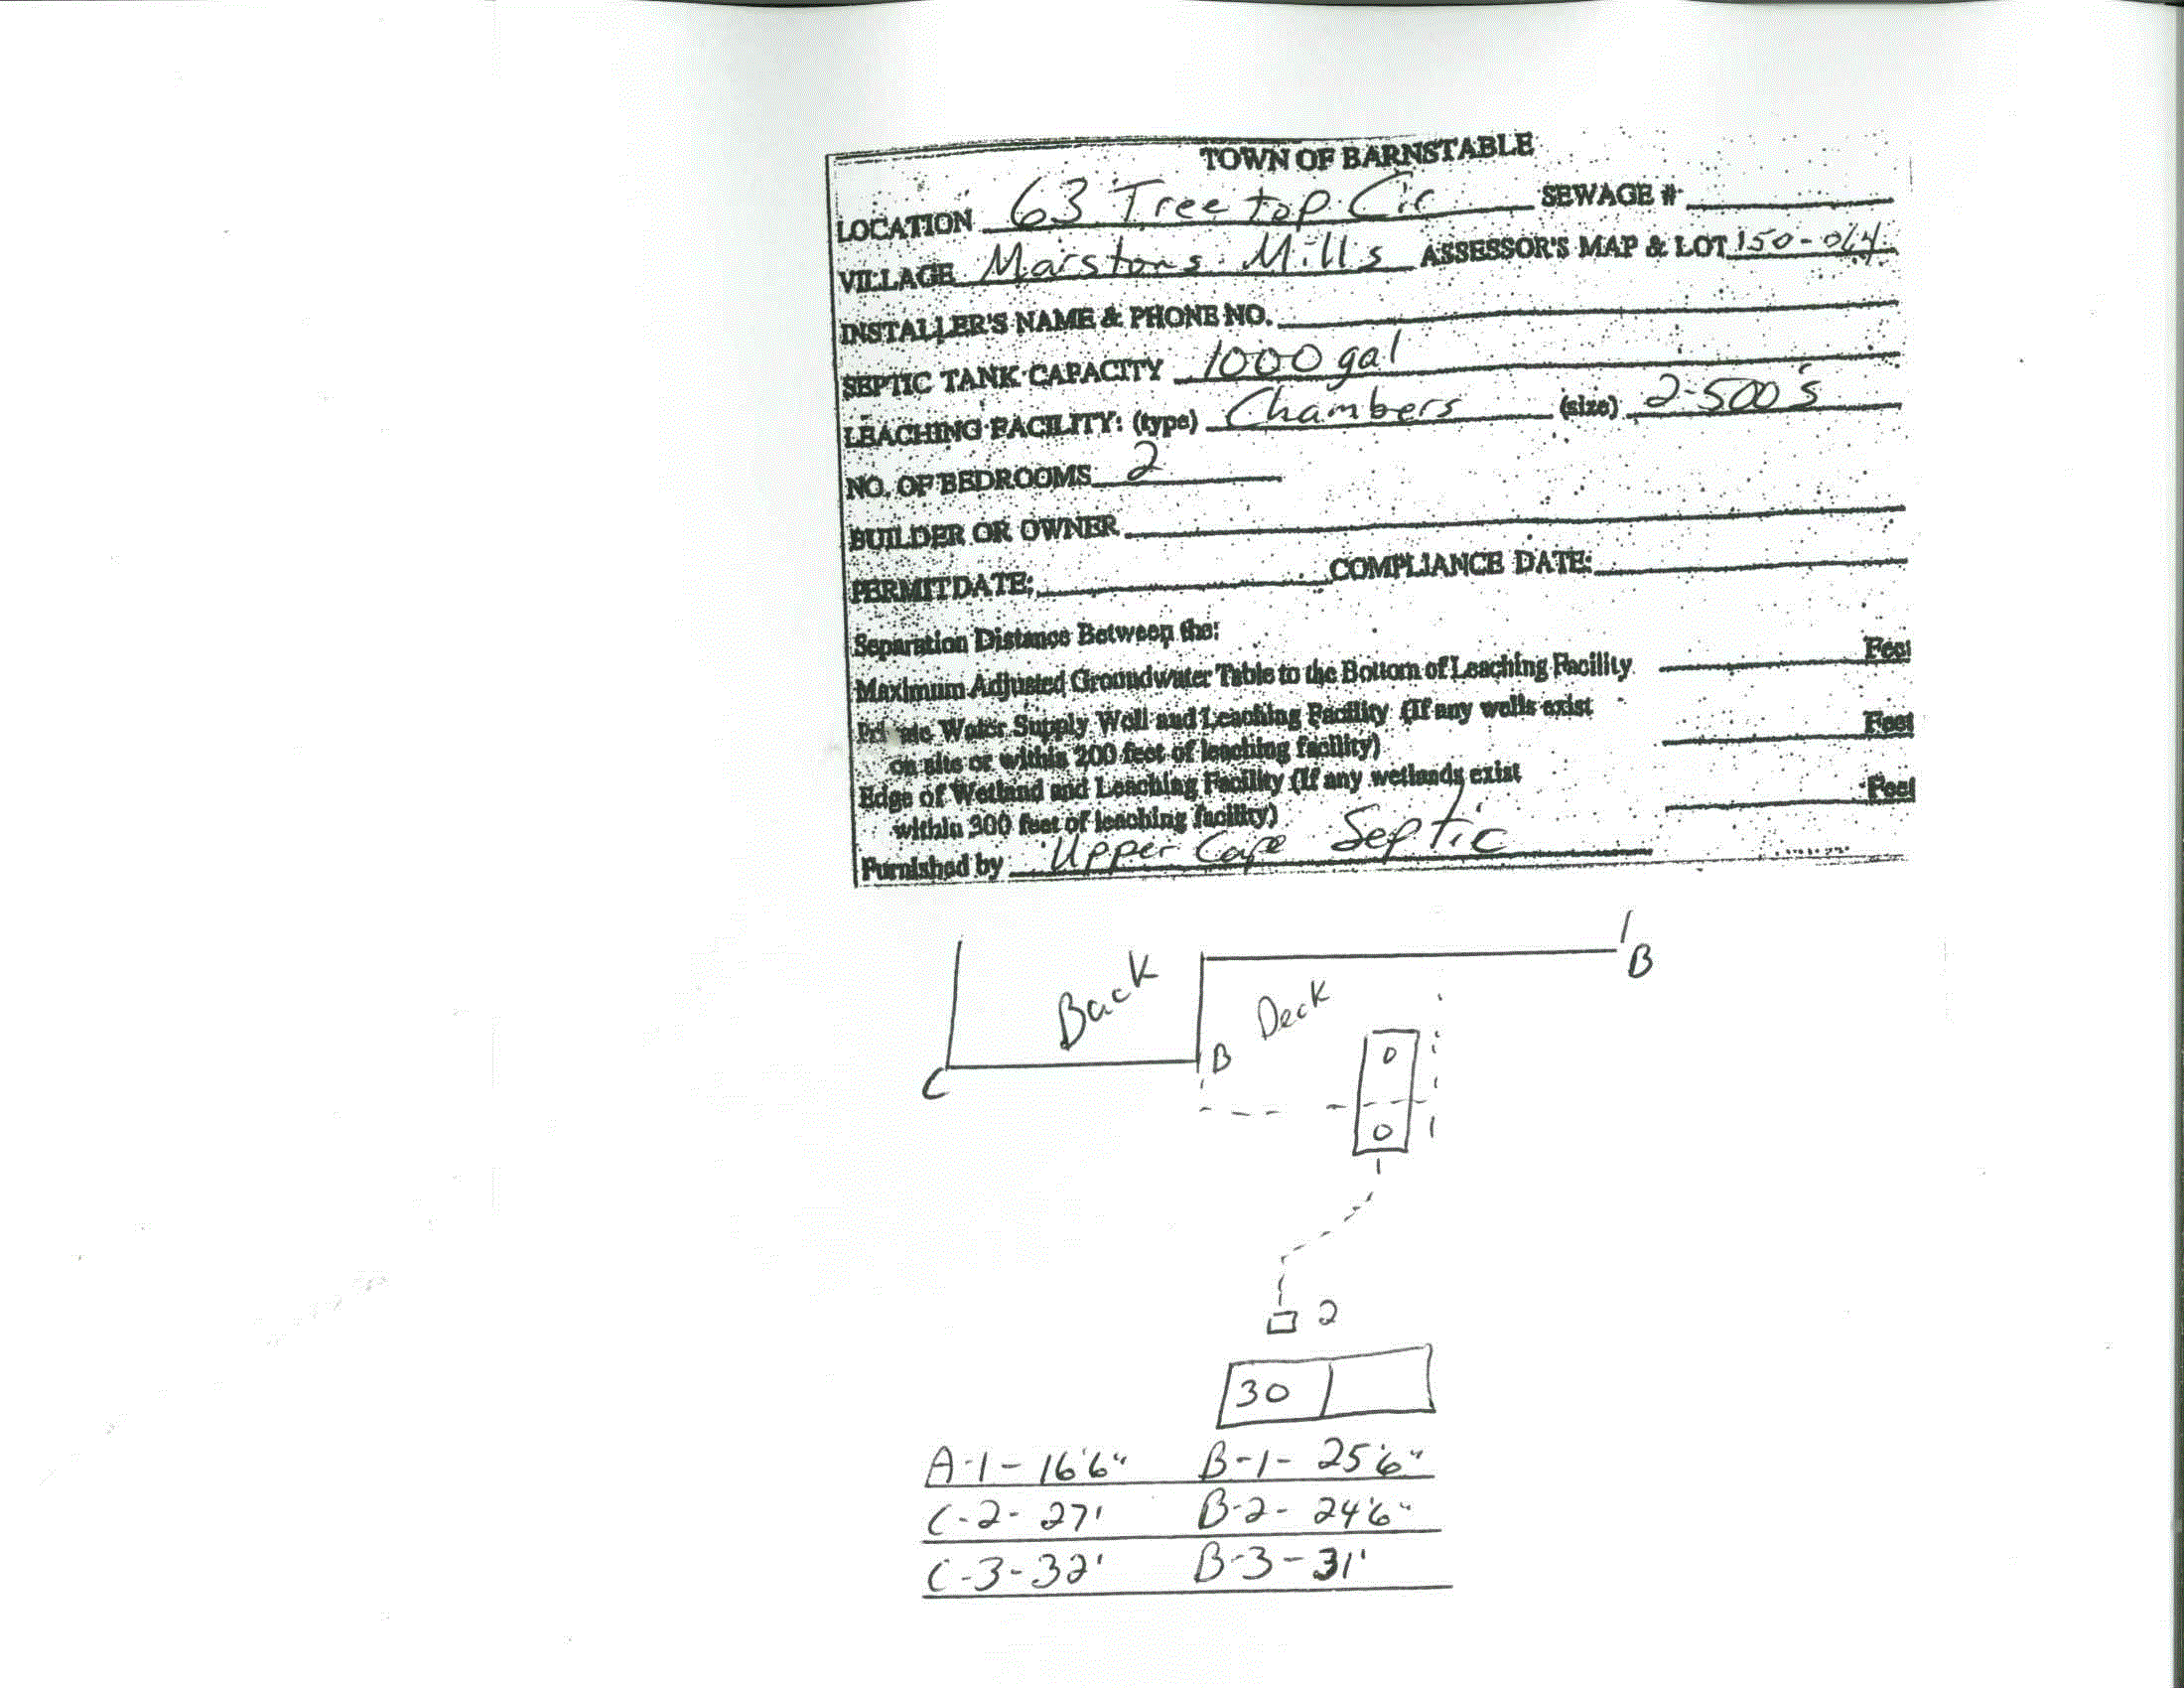 TOWN OF BARNSTABLE
LOCATION 63 Treetop Cir SEWAGE #
VILLAGE Marstons Mills ASSESSOR'S MAP & LOT 150-064
INSTALLER'S NAME & PHONE NO.
SEPTIC TANK CAPACITY 1000 gal
LEACHING FACILITY: (type) Chambers (size) 2-500's
NO. OF BEDROOMS 2
BUILDER OR OWNER
PERMITDATE: COMPLIANCE DATE:
Separation Distance Between the:
Maximum Adjusted Groundwater Table to the Bottom of Leaching Facility Feet
Private Water Supply Well and Leaching Facility (If any wells exist Feet
on site or within 200 feet of leaching facility)
Edge of Wetland and Leaching Facility (If any wetlands exist Feet
within 300 feet of leaching facility)
Furnished by Upper Cape Septic
B
Back
Deck
B
C
O
O
1
2
30
A-1- 16'6" B-1- 25'6"
C-2- 27' B-2- 24'6"
C-3-32' B-3-31'